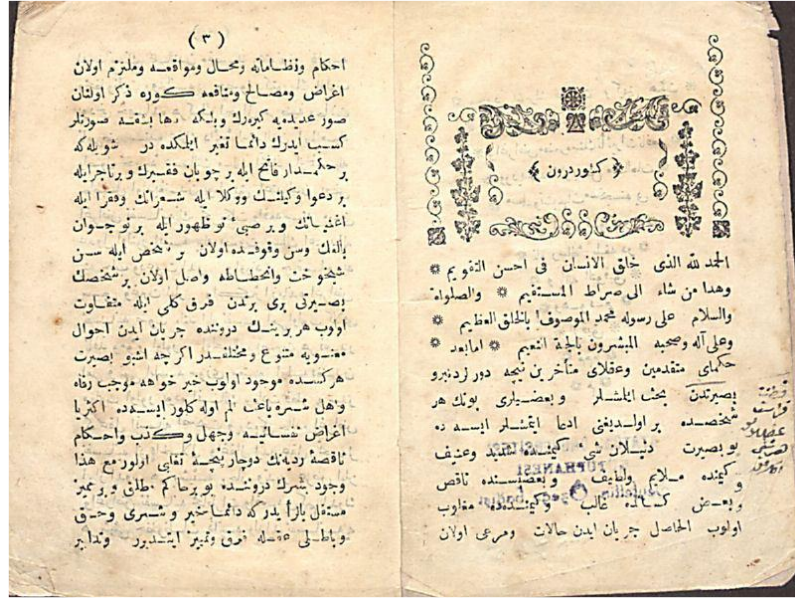 ﴿ كشور درون ﴾
الحمد لله الذى خلق الانسان فى احسن التقويم ❋
وهدا من شاء الى صراط المستقيم ❋ والصلواة
والسلام على رسوله محمد الموصوف بالخلق العظيم ❋
وعلى آله وصحبه المبشرون بالجنة النعيم ❋ امابعد ❋
حكماى متقدمين وعقلاى متأخرين نيچه دور زدنبرو
بصيرتدن بحث ايلمشلر وبعضيلرى بونك هر
شخصده بر اولديغنى ادعا ايتمشلر ايسه ده
بو بصيرت دنيلان شى كيمنده شديد وعنيف
و كيمنده ملايم ولطيف وبعضيسنده ناقص
وبعض كسانده غالب وكيمنده ده مغلوب
اولوب الحاصل جريان ايدن حالات ومرعى اولان
(٣)
احكام ونظاماته ومحال ومواقعه وملتزم اولان
اغراض ومصالح ومنافعه كوره ذكر اولنان
صور عديده يه كيره رك وبلكه دها بشقه صورتلر
كسب ايدرك دائما تغير ايلمكده در شويله كه
بر حكمدار فاتح ايله بر چوبان فقيرك وبر تاجر ايله
بر دعوا وكيلنك ووكلا ايله شعرانك وفقرا ايله
اغنيانك وبر صبئ نو ظهور ايله بر نو جوان
بالغك وسن وقوفده اولان بر شخص ايله سن
شيخوخت وانحطاطه واصل اولان بر شخصك
بصيرتى برى برندن فرق كلى ايله متفاوت
اولوب هر برينك دروننده جريان ايدن احوال
معنويه متنوع ومختلفدر اكرچه اشبو بصيرت
هركسده موجود اولوب خير خواهه موجب رفاه
واهل شره باعث الم اوله كلور ايسه ده اكثريا
اغراض نفسانيه وجهل وكذب واحكام
ناقصۀ رديه نك دوچار پنجۀ تغلبى اولور مع هذا
وجود بشرك دروننده بو بر حاكم مطلق وبر مميز
مستقل بالرأيدر كه دائما خير وشرى وحق
وباطلى عقله فرق وتمييز ايتديرر وتدابير